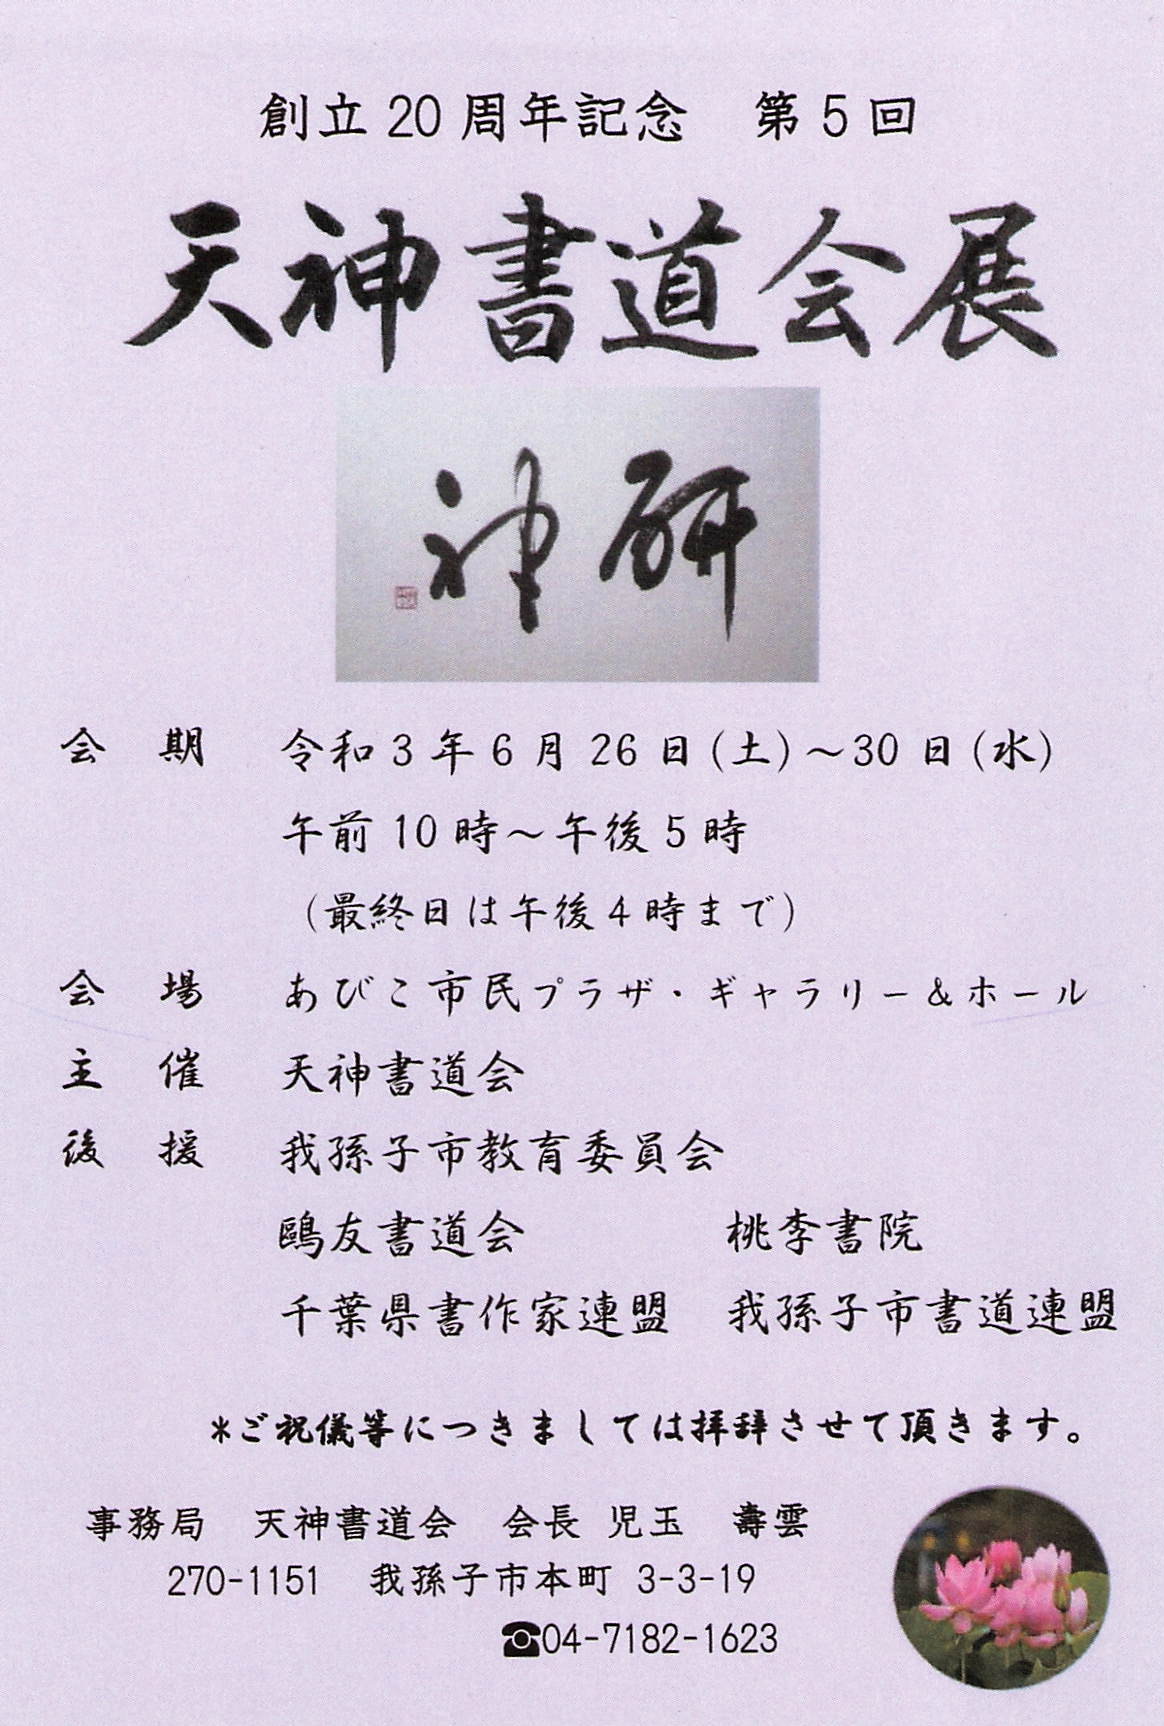 創立20周年記念　第5回
天神書道会展
研神
会　期　令和3年6月26日(土)～30日(水)
午前10時～午後5時
(最終日は午後4時まで)
会　場　あびこ市民プラザ・ギャラリー&ホール
主　催　天神書道会
後　援　我孫子市教育委員会
鷗友書道会　桃李書院
千葉県書作家連盟　我孫子市書道連盟
*ご祝儀等につきましては拝辞させて頂きます。
事務局　天神書道会　会長 児玉　壽雲
270-1151　我孫子市本町 3-3-19
☎04-7182-1623